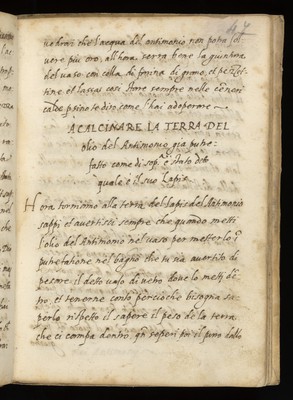 vedrai che l'acqua del antimonio non potrà sol
uere più oro, all'hora serra bene la
del uaso con colla di farina di grano, et pezze
tine et lascia così stare sempre nelle ceneri
calde
A CALCINARE LA TERRA DEL
olio del Antimonio, già putre-
fatto come di sop.ª è stato dẽto
quale è il suo Lapis
Hora torniamo alla terra, del lapis del Antimonio
sappi et avertissi sempre che quando metti
l'olio del Antimonio nel uaso per metterlo ĩ
putrefatione nel bagno che tu sia avertito di
pesare il detto uaso di uetro dove lo metti dẽ-
tro, et tenerne conto percioche bisogna sa-
perlo rispeto il sapere il peso de la terra
che ci rimane dentro,